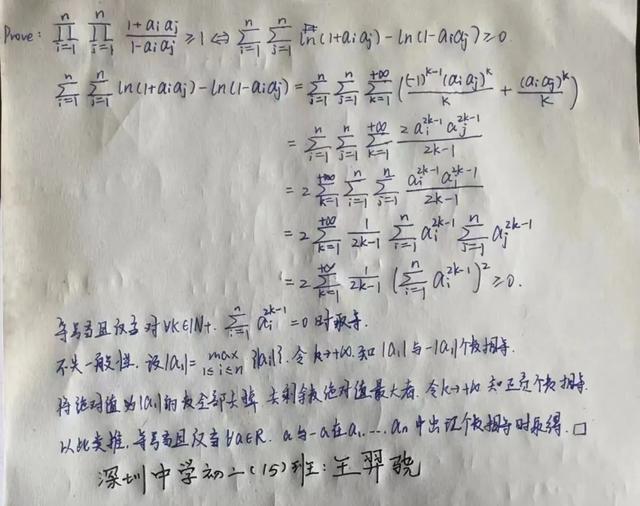 Prove: \prod_{i=1}^{n} \prod_{j=1}^{n} \frac{1+a_i a_j}{1-a_i a_j} ≥ 1 ⇔ \sum_{i=1}^{n} \sum_{j=1}^{n} ln(1+a_i a_j) - ln(1-a_i a_j) ≥ 0.
\sum_{i=1}^{n} \sum_{j=1}^{n} ln(1+a_i a_j) - ln(1-a_i a_j) = \sum_{i=1}^{n} \sum_{j=1}^{n} \sum_{k=1}^{+∞} ( \frac{(-1)^{k-1}(a_i a_j)^k}{k} + \frac{(a_i a_j)^k}{k} )
= \sum_{i=1}^{n} \sum_{j=1}^{n} \sum_{k=1}^{+∞} \frac{2 a_i^{2k-1} a_j^{2k-1}}{2k-1}
= 2 \sum_{k=1}^{+∞} \sum_{i=1}^{n} \sum_{j=1}^{n} \frac{a_i^{2k-1} a_j^{2k-1}}{2k-1}
= 2 \sum_{k=1}^{+∞} \frac{1}{2k-1} \sum_{i=1}^{n} a_i^{2k-1} \sum_{j=1}^{n} a_j^{2k-1}
= 2 \sum_{k=1}^{+∞} \frac{1}{2k-1} ( \sum_{i=1}^{n} a_i^{2k-1} )^2 ≥ 0.
等号当且仅当对∀k∈N+. \sum_{i=1}^{n} a_i^{2k-1} = 0 时取等.
不失一般性. 设|a_1| = \max_{1≤i≤n} {|a_i|}. 令k→+∞. 知|a_1|与-|a_1|个数相等.
将绝对值为|a_1|的数全部去掉. 去剩余数绝对值最大者. 令k→+∞ 知正负个数相等.
以此类推. 等号当且仅当∀a∈R. a与-a在a_1, ..., a_n中出现个数相等时取得. □
深圳中学初二(15)班: 王羿骁